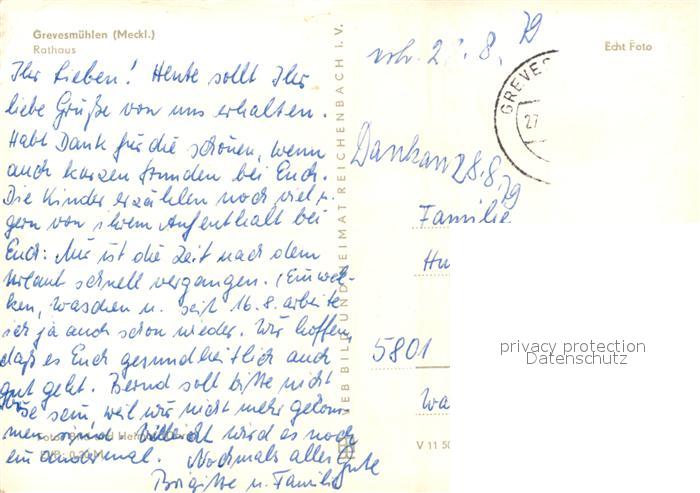 Grevesmühlen (Meckl.)
Rathaus
Ihr Lieben! Heute sollt Ihr
liebe Grüße von uns erhalten.
Habt Dank für die schönen, wenn
auch kurzen Stunden bei Euch.
Die Kinder erzählen noch viel u.
gern von ihrem Aufenthalt bei
Euch. Mir ist die Zeit nach dem
Urlaub schnell vergangen. (Einwek-
ken, waschen u. seit 16.8. arbeite
ich ja auch schon wieder. Wir hoffen,
daß es Euch gesundheitlich auch
gut geht. Bernd soll bitte nicht
böse sein, weil wir nicht mehr gekom-
men sind. Vielleicht wird es noch
ein andermal. Nochmals alles Gute
Brigitte u. Familie
VEB BILD UND HEIMAT REICHENBACH I. V.
Echt Foto
GREVES
27
8. 79
Dank am 28.8.79
Familie
Hu
5801
Wa
V 11 50
privacy protection
Datenschutz